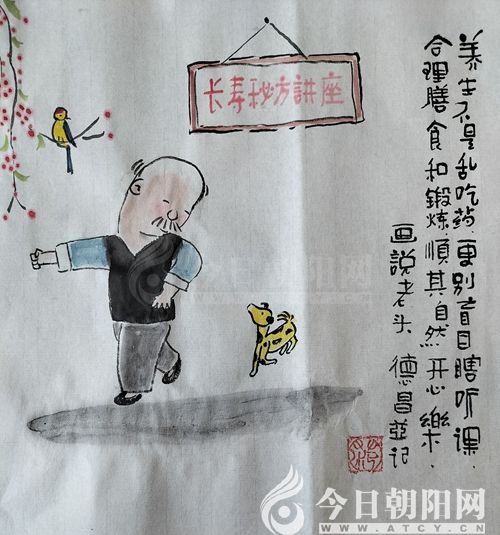 长寿秘方講座
养生不是乱吃药.更别盲目瞎听课.
合理膳食和鍛炼.順其自然开心樂.
画説老头 德昌並记
今日朝阳网
今日朝阳网
WWW.ATCY.CN